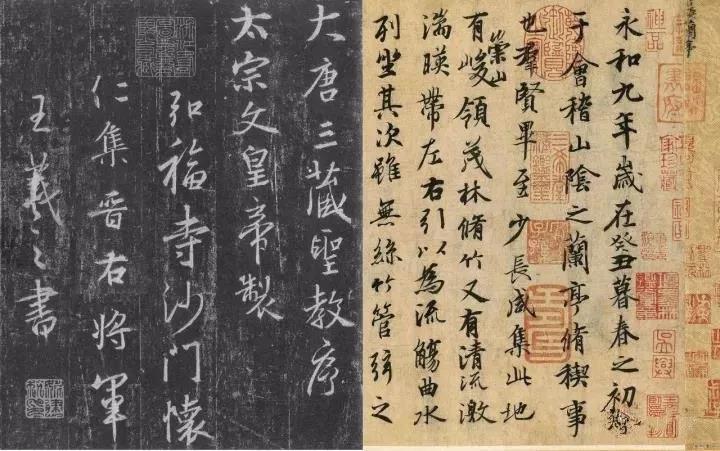 大唐三藏聖教序
太宗文皇帝製
弘福寺沙門懷
仁集晉右將軍
王羲之書
永和九年歲在癸丑暮春之初會
于會稽山陰之蘭亭脩稧事
也羣賢畢至少長咸集此地
有崇山峻領茂林脩竹又有清流激
湍暎帶左右引以為流觴曲水
列坐其次雖無絲竹管弦之